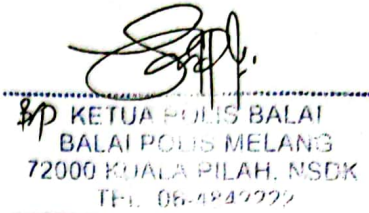 BP KETUA POLIS BALAI
BALAI POLIS MELANG
72000 KUALA PILAH. NSDK
TEL 06-4842222